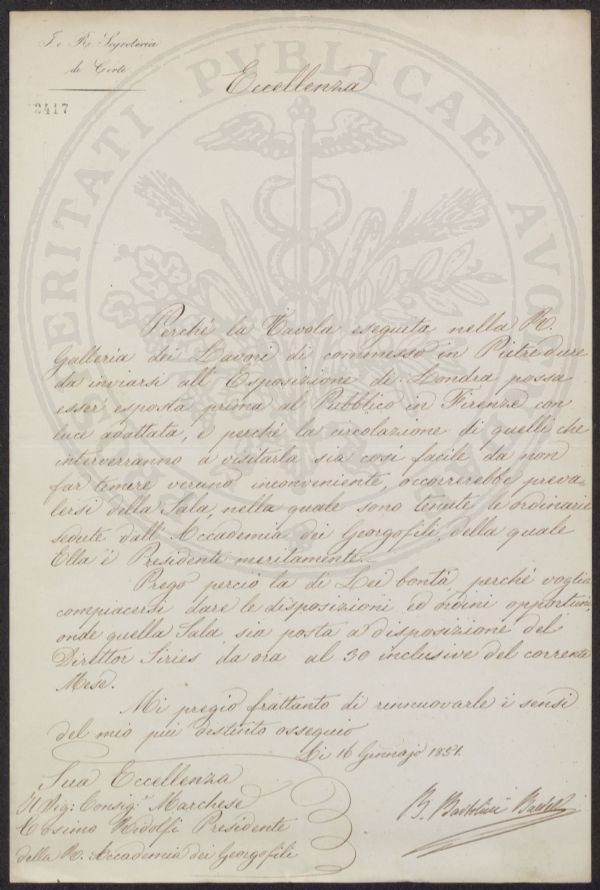 I. e R. Segreteria
di Corte
2417
Eccellenza
Perchè la Tavola eseguita nella R.
Galleria dei Lavori di commesso in Pietre dure
da inviarsi all'Esposizione di Londra possa
esser esposta prima al Pubblico in Firenze con
luce adattata, e perchè la circolazione di quelli che
interverranno a visitarla sia così facile da non
far temere verun inconveniente, occorrerebbe preva-
lersi della Sala, nella quale sono tenute le ordinarie
sedute dall'Accademia dei Georgofili, della quale
Ella è Presidente meritamente.
Prego perciò la di Lei bontà, perchè voglia
compiacersi dare le disposizioni ed ordini opportuni,
onde quella Sala sia posta a disposizione del
Direttor Siries da ora al 30 inclusive del corrente
Mese.
Mi pregio frattanto di rinnuovarle i sensi
del mio più distinto ossequio
Li 16 Gennajo 1851.
Sua Eccellenza
Il Sig: Consig. Marchese
Cosimo Ridolfi Presidente
della R. Accademia dei Georgofili
B. Bartolini
PUBLICAE